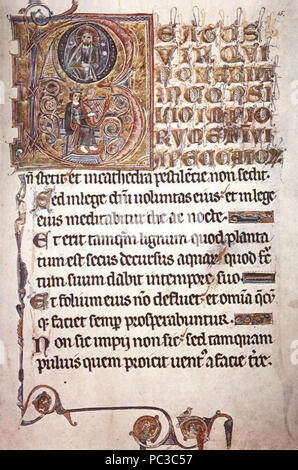 BEATUS
VIR QVI
NON ABIIT
IN CONSI
LIO IMPIO
RVM ET
PECCATOR
n stetit et in cathedra pestilencie non sedit.
Sed in lege dni voluntas eius et in lege
eius meditabitur die ac nocte.
Et erit tamqm lignum quod planta
tum est secus decursus aquar quod
tum suum dabit in tempore suo.
Et folium eius no defluet et omia qcq
q faciet semp prosperabuntur.
Non sic impij non sic sed tamquam
puluis quem proicit uent a facie tre.